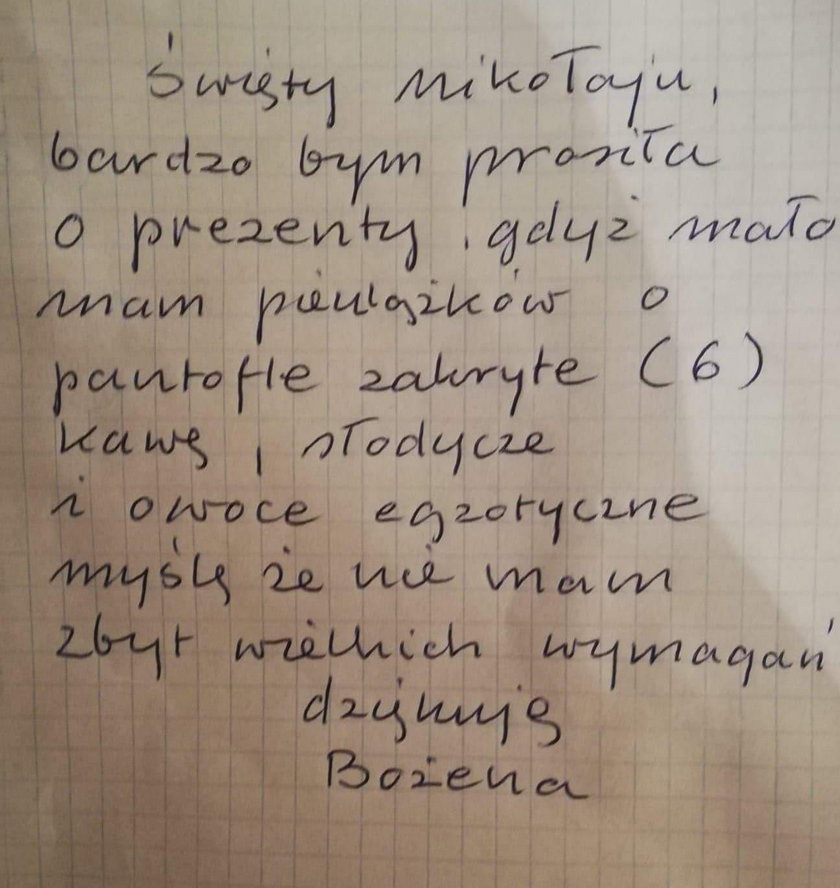 Święty mikołaju,
bardzo bym prosiła
o prezenty, gdyż mało
mam pieniążków o
pantofle zakryte (6)
kawę, słodycze
i owoce egzotyczne
myślę że nie mam
zbyt wielkich wymagań
dziękuję
Bożena